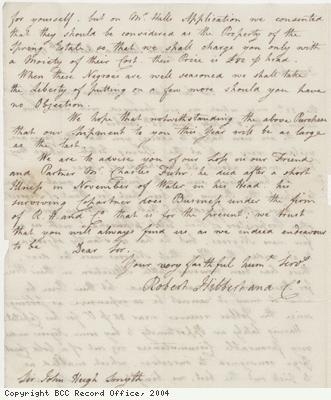 for yourself. but on Mr. Halls Application we consented
that they should be considered as the Property of the
Spring Estate so that we shall charge you only with
a Moiety of their Cost their Price is per head.
When these Negroes are well seasoned we shall take
the Liberty of putting on a few more should you have
no Objection
We hope that notwithstanding the above Purchase
that our Shipment to you this Year will be as large
as the last.
We are to advise you of our Loss in our Friend
and Partner Mr. Charles Fuhr he died after a short
Illness in November of Water in his Head his
surviving Copartner does Business under the firm
of R H and Co. that is for the present; we trust
that you will always find us as we indeed endeavour
to be Dear Sir,
Your very faithful humle. Servts.
Robert Hibbert and Co.
Sir John Hugh Smyth
Copyright BCC Record Office, 2004